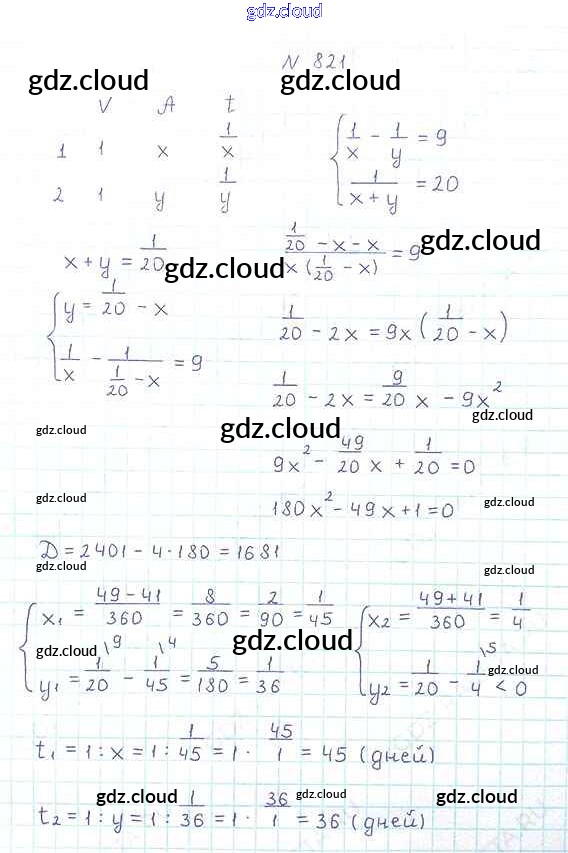 gdz.cloud
N 821
gdz.cloud gdz.cloud
V A t
1 1 x 1/x
2 1 y 1/y
{ 1/x - 1/y = 9
1/(x + y) = 20
x + y = 1/20
gdz.cloud gdz.cloud
(1/20 - x - x)/(x(1/20 - x)) = 9
{ y = 1/20 - x
1/x - 1/(1/20 - x) = 9
1/20 - 2x = 9x(1/20 - x)
1/20 - 2x = 9/20 x - 9x²
gdz.cloud
gdz.cloud gdz.cloud
9x² - 49/20 x + 1/20 = 0
gdz.cloud gdz.cloud
180x² - 49x + 1 = 0
D = 2401 - 4·180 = 1681
gdz.cloud gdz.cloud
{ x₁ = (49 - 41)/360 = 8/360 = 2/90 = 1/45
gdz.cloud gdz.cloud
y₁ = 1/20 \9 - 1/45 \4 = 5/180 = 1/36
{ x₂ = (49 + 41)/360 = 1/4
y₂ = 1/20 - 1/4 \5 < 0
gdz.cloud
t₁ = 1 : x = 1 : 1/45 = 1 · 45/1 = 45 (дней)
gdz.cloud gdz.cloud gdz.cloud
t₂ = 1 : y = 1 : 1/36 = 1 · 36/1 = 36 (дней)